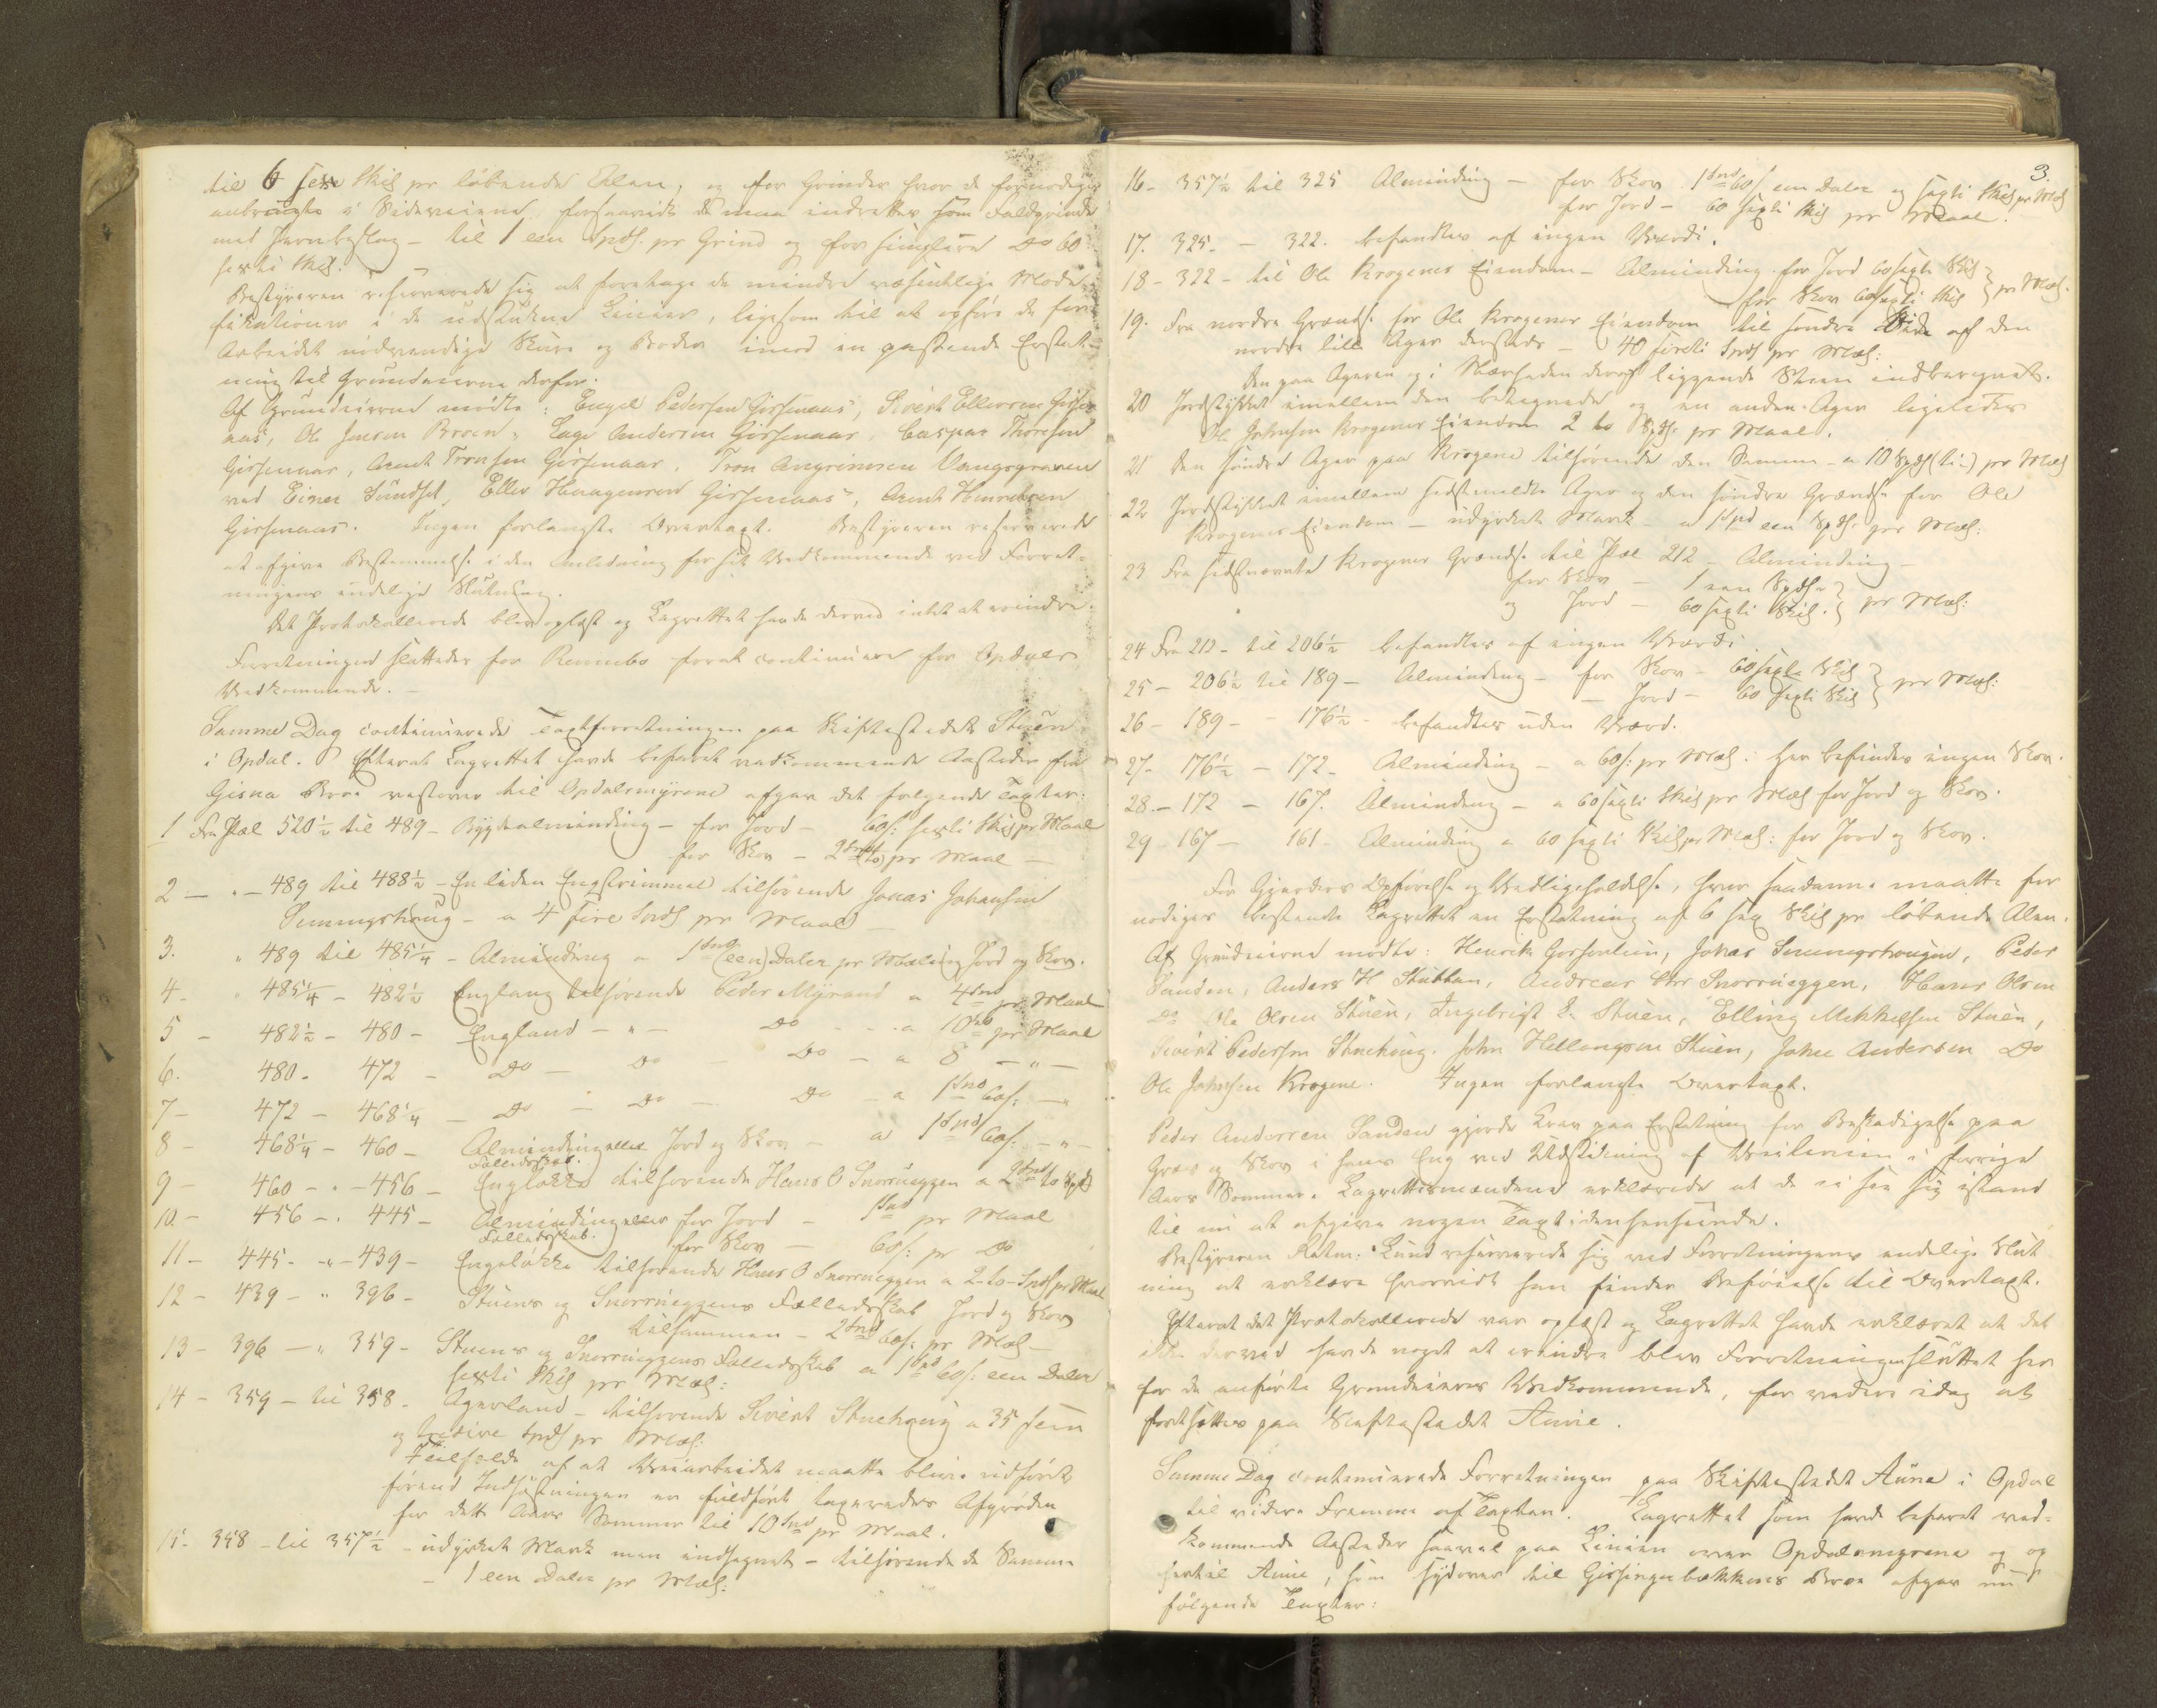 til 6 sex Skil pr löbende Alen, og for Grinder hvor de fornødiges
anbragte i Sideveiene forsaavidt de maa indrettes som Faldgrinde
med Jernbeslag – til 1 een Spd. pr Grind og for simplere Do 60
sexti Skil:
Bestyreren reserverede sig at foretage de mindre væsentlige Modi-
fikationer i de udstukne Linier, ligesom til at opføre de for
Arbeidet nødvendige Skure og Boder imod en passende Erstat-
ning til Grundeierne derfor.
Af Grundeierne mødte: Engel Pedersen Gissenaas, Sivert Ellevsen Gisse-
naas, Ole Jensen Broen, Lage Andersen Gissenaas, Caspar Thoresen
Gissenaas, Arent Tronsen Gissenaas, Tron Angrimsen Vangsgraven
ved Einer Sundset, Ellev Haagensen Gissenaas, Arent Henriksen
Gissenaas. Ingen forlangte Overtaxt. Bestyreren reserverede
at afgive Bestemmelse i den Anledning for sit Vedkommende ved Forret-
ningens endelige Slutning.
Det Protokollerede blev oplæst og Lagrettet havde derved intet at erindre.
Forretningen sluttedes for Rennebo forat continuere for Opdals
Vedkommende. –
Samme Dag continuerede Taxtforretningen paa Skiftestedet Stuen
i Opdal. Efterat Lagrettet havde befaret vedkommende Aasteder fra
Gisna Bro vestover til Opdalsmyrene afgav det følgende Taxter:
1 Fra Pæl 520½ til 489 – Bygdealminding – for Jord – 60/: sexti Skil pr Maal
for Skov – 2 Spd (to) pr Maal –
2 – " – 489 til 488½ – En liden Engstrimmel tilhörende Jonas Johansen
Semmingshaug – a 4 fire Spd pr Maal –
3. " 489 til 485¼ – Alminding a 1 Spd (een) Daler pr Mæling Jord og Skov.
4 – " 485¼ – 482½ Englang tilhörende Peder Myrand a 4 Spd pr Maal
5 – 482½ – 480 – England – " – Do – – a 10 Spd pr Maal
6. 480 – 472 – Do – Do – Do – a 8 – " –
7 – 472 – 468¼ – Do – Do – Do – a 1 Spd 60/: – "
8 – 468¼ – 460 – Alminding eller Jord og Skov – a 1 Spd 60/: – " –
Fælledsskab.
9 – 460 – " – 456 – Engløkke tilhorende Hans O Snorrueggen a 2 Spd to Spd
10 – 456 – " 445 – Alminding eller for Jord – 1 Spd pr Maal
Fælledsskab. for Skov – 60/: pr Do
11 – 445 – " – 439 – Engeløkke tilhorende Hans O Snorrueggen a 2 – to – Spd pr Maal
12 – 439 – " 396 – Stuens og Snorrueggens Fælledsskab Jord og Skov
tilsammen – 2 Spd 60/: pr Mæl –
13 – 396 – " 359 – Stuens og Snorrueggens Fælledsskab a 1 Spd 60/: een Daler
sexti Skil pr Mæl:
14 – 359 – til 358 – Agerland – tilhorende Sivert Stuehaug a 35 fem
og tredive Spd pr Mæl:
I Tilfælde af at Veiarbeidet maatte blive udført
førend Indhøstningen er fuldført taxeredes Afgrøden
for dette Aars Sommer til 10 Spd pr Maal.
15 – 358 – til 357½ – udyrket Mark men indhegnet – tilhörende de Samme
– 1 een Daler pr Mæl:
3.
16 – 357½ til 325 Alminding – for Skov 1 Spd 60/ een Daler og sexti Skil pr Mæl
for Jord – 60 sexti Skil pr Maal.
17. 325 – – 322. befandtes af ingen Værdi.
18 – 322 – til Ole Krogenes Eiendom – Alminding for Jord 60 sexti Skil } pr Mæl.
for Skov 60 sexti Skil
19. Fra nordre Grændse for Ole Krogenes Eiendom til søndre Side af den
nordre lille Ager dersteds – 40 fireti Spd pr Mæl:
den paa Ageren og i Nærheden deraf liggende Steen indberegnet.
20 Jordstykket imellem den betegnede og en anden Ager ligeledes
Ole Johnsen Krogenes Eiendom 2 to Spd. pr Maal.
21 Den söndre Ager paa Krogene tilhörende den Samme – a 10 Spd (ti) pr Mæl
22 Jordstykket imellem sidstmeldte Ager og den söndre Grændse for Ole
Krogenes Eiendom – udyrket Mark – a 1 Spd een Spd. pr Mæl:
23 Fra sidstnævnte Krogenes Grændse til Pæl 212 – Alminding –
for Skov – 1 een Spd } pr Mæl:
og Jord – 60 sexti Skil.
24 Fra 212 – til 206½ befandtes af ingen Værdi
25 – 206½ til 189 – Alminding – for Skov – 60 sexti Skil } pr Mæl:
– Jord – 60 sexti Skil
26 – 189 – – 176½ – befandtes uden Værd.
27 – 176½ – 172 – Alminding – a 60/: pr Mæl: her befindes ingen Skov.
28 – 172 – 167. Alminding – a 60 sexti Skil pr Mæl for Jord og Skov.
29 – 167 – 161 – Alminding a 60 sexti Skil pr Mæl: for Jord og Skov.
For Gjerders Opförelse og Vedligeholdelse, hvor saadanne maatte for
nødiges bestemte Lagrettet en Erstatning af 6 sex Skil pr löbende Alen.
Af Grundeierne mødte: Henrik Gorsetlien, Johas Semmingshaugen, Peder
Sanden, Anders H Stubban, Andreas Snorrueggen, Hans Olsen
Do Ole Olsen Stuen, Ingebrigt E. Stuen, Elling Mikkelsen Stuen,
Sivert Pedersen Stuehaug. John Hellangsen Stuen, John Andersen Do
Ole Johnsen Krogene. Ingen forlangte Overtaxt.
Peder Andersen Sanden gjorde Krav paa Erstatning for Beskadigelse paa
Græs og Skov i hans Eng ved Udstikning af Veilinien i forrige
Aars Sommer. Lagrettesmændene erklærede at de ei see sig istand
til nu at afgive nogen Taxt idenhenseende.
Bestyreren Kapt. Lund reserverede sig ved Forretningens endelige Slut
ning at erklære hvorvidt han finder Beföielse til Overtaxt.
Efterat det Protokollerede var oplæst og Lagrettet havde erklæret at det
ikke derved havde noget at erindre blev Forretningen sluttet her
for de anførte Grundeieres Vedkommende, for videre idag at
fortsættes paa Skiftestedet Aune.
Samme Dag continuerede Forretningen paa Skiftestedet Aune i Opdal
til videre Fremme af Taxten. Lagrettet som havde befaret ved-
kommende Aasteder saavel paa Linien over Opdalsmyrene og op
hertil Aune, som sydover til Gissingerbækkens Bro afgav nu
følgende Taxter: